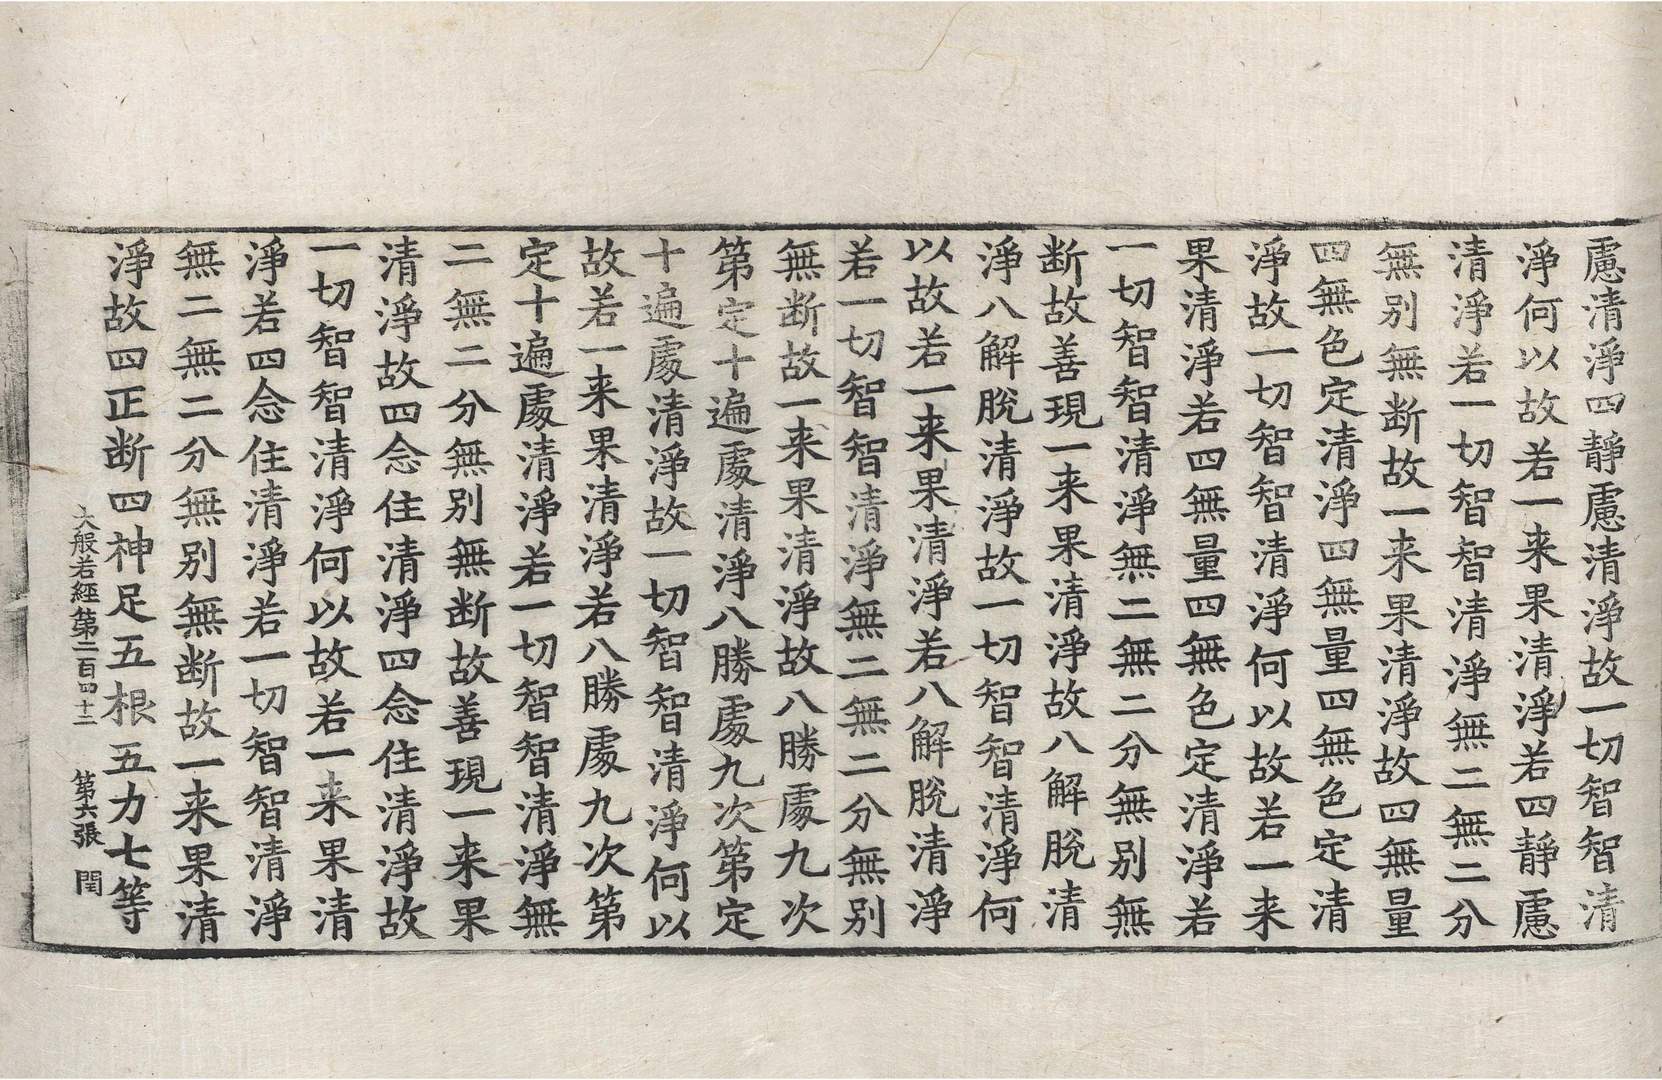 慮清淨四靜慮清淨故一切智智清
淨何以故若一来果清淨若四靜慮
清淨若一切智智清淨無二無二分
無別無断故一来果清淨故四無量
四無色定清淨四無量四無色定清
淨故一切智智清淨何以故若一来
果清淨若四無量四無色定清淨若
一切智智清淨無二無二分無別無
断故善現一来果清淨故八解脫清
淨八解脫清淨故一切智智清淨何
以故若一来果清淨若八解脫清淨
若一切智智清淨無二無二分無別
無断故一来果清淨故八勝處九次
第定十遍處清淨八勝處九次第定
十遍處清淨故一切智智清淨何以
故若一来果清淨若八勝處九次第
定十遍處清淨若一切智智清淨無
二無二分無別無断故善現一来果
清淨故四念住清淨四念住清淨故
一切智智清淨何以故若一来果清
淨若四念住清淨若一切智智清淨
無二無二分無別無断故一来果清
淨故四正断四神足五根五力七等
大般若經第二百四十二 第六張 閏